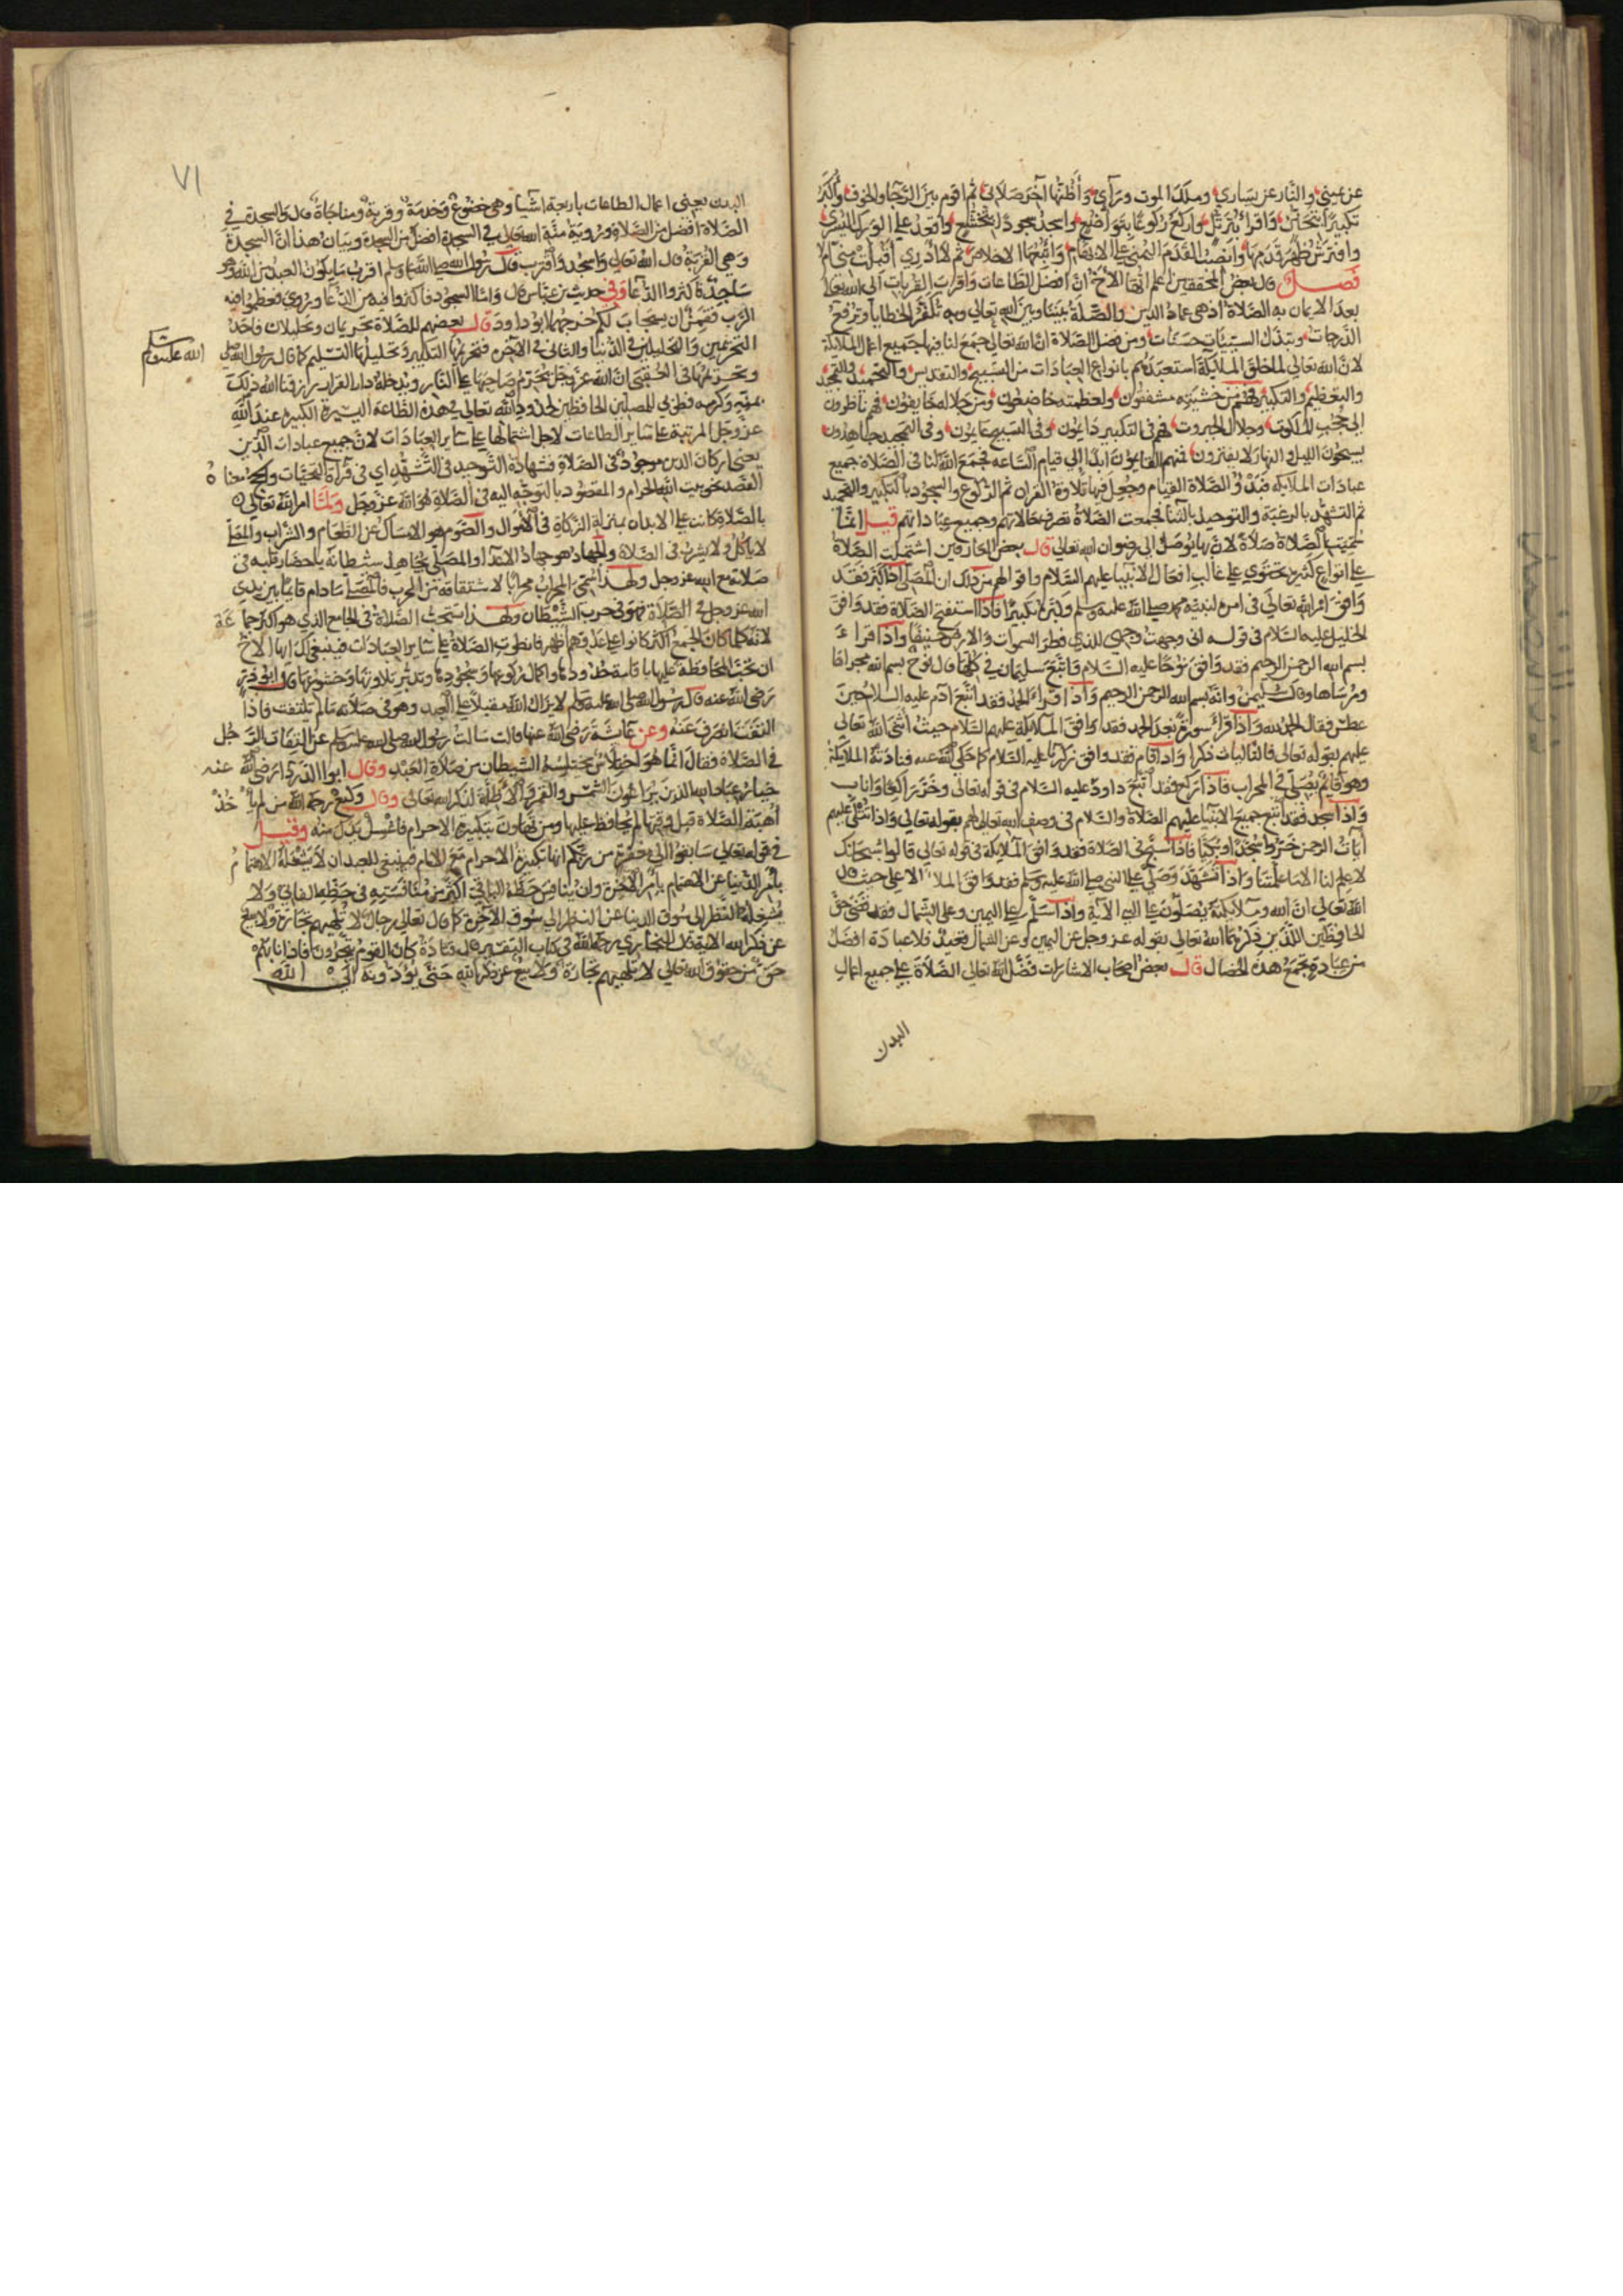 عن يميني والنار عن يساري وملك الموت ورآي وأظنها آخر صلاتي ثم اقوم بين الرجا والخوف وأكبر
تكبيرا بتحنن واقرأ بترتيل واركع ركوعا بتواضع واسجد سجودا بتخشع واقعد على الورك اليسرى
وافترش ظهر قدمها وانصب القدم اليمنى على الابهام واتبعها الاخلاص ثم لا ادري أقبلت مني ام لا
فصل قال بعض المحققين اعلم ايها الاخ ان افضل الطاعات واقرب القربات الى الله تعالى
بعد الايمان به الصلاة اذ هي عماد الدين والصلة بيننا وبين الله تعالى وبه تكفر الخطايا وترفع
الدرجات وتبدل السيئات حسنات ومن فضل الصلاة ان الله تعالى جمع لنا فيها جميع اعمال الملايكة
لان الله تعالى لما خلق الملايكة استعبدهم بانواع العبادات من التسبيح والتقديس والتحميد والتمجيد
والتعظيم والتكبير فهم من خشيته مشفقون ولعظمته خاضعون ومن جلاله خايفون فهم ناظرون
الى حجب الملكوت وجلال الجبروت فهم في التكبير دايمون وفي التسبيح وفي التمجيد جاهدون
يسبحون الليل والنهار لا يفترون فمنهم ابدا الى قيام الساعه فجمع الله لنا في الصلاة جميع
عبادات الملايكه فبدؤ الصلاة القيام وجعل فيها تلاوة القران ثم الركوع والسجود بالتكبير والتحميد
ثم التشهد بالرغبة والتوحيد بالثنا فجمعت الصلاة تصرف حالاتهم وجميع عباداتهم قيل انما
سميت الصلاة صلاة لان بها يوصل الى رضوان الله تعالى قال بعض العارفين اشتملت الصلاة
على انواع كثيرة تحتوي على غالب افعال الانبيا عليهم السلام واقوالهم من ذلك ان المصلي اذا كبر فقد
وافق امر الله تعالى في امره لنبيه محمد صلى الله عليه وسلم وكبره تكبيرا فاذا استفتح الصلاة فقد وافق
الخليل عليه السلام في قوله اني وجهت وجهي للذي فطر السموات والارض حنيفا واذا قراء
بسم الله الرحمن الرحيم فقد وافق نوحا عليه السلام واتبع سليمان في قال نوح بسم الله مجراها
ومرساها وقال سليمن وانه بسم الله الرحمن الرحيم واذا قراء الحمد فقد اتبع آدم عليه السلام حين
عطس فقال الحمد لله واذا قرأ سورة بعد الحمد فقد وافق الملايكة عليهم السلام حيث اثنى الله تعالى
عليهم بقوله تعالى فالتاليات ذكرا واذا قام فقد وافق زكريا عليه السلام كما حكى الله عنه فنادته الملايكة
وهو قايم يصلي في المحراب فاذا ركع فقد اتبع داود عليه السلام في قوله تعالى وخر راكعا واناب
واذا سجد فقد اتبع جميع الانبيا عليهم الصلاة والسلام في وصف الله تعالى لهم بقوله تعالى واذا تتلى عليهم
آيات الرحمن خروا سجدا وبكيا فاذا سبح في الصلاة فقد وافق الملايكة في قوله تعالى قالوا سبحانك
لا علم لنا الا ما علمتنا واذا تشهد وصلى على النبي صلى الله عليه وسلم فقد وافق الملا الاعلى حيث قال
الله تعالى ان الله وملايكته يصلون على النبي الآية واذا سلم على اليمين وعلى الشمال فقد قضى حق
الحافظين اللذين ذكرهما الله تعالى بقوله عز وجل عن اليمين وعن الشمال قعيد فلا عبادة افضل
من عبادة تجمع هذه الخصال قال بعض اصحاب الاشارات فضل الله تعالى الصلاة على جميع اعمال
البدن
٧١
البدن يعني اعمال الطاعات باربعة اشيا وهي خضوع وخدمة وقربة ومناجاة قال والسجدة في
الصلاة افضل من الصلاة في السجدة افضل من السجدة وبيان هذا ان السجدة
وهي القربة قال الله تعالى واسجد واقترب قال رسول الله صلى الله عليه وسلم اقرب ما يكون العبد من الله وهو
ساجد فاكثروا الدعا وفي حديث بن عباس قال واما السجود فاكثروا فيه من الدعا وروي فعظموا فيه
الرب فقمن ان يستجاب لكم خرجهما ابو داود قال بعضهم للصلاة تحريمان وتحليلان فاحد
التحريمين والتحليلين في الدنيا والثاني في الآخرة فتحريمها التكبير وتحليلها التسليم كما قال رسول الله صلى
الله عليه وسلم
وتحريمها في العقبى ان الله عز وجل يحرم صاحبها على النار ويدخله دار القرار رزقنا الله ذلك
بمنه وكرمه فطوبى للمصلين الحافظين لحدود الله تعالى في هذه الطاعة اليسيرة الكبيرة عند الله
عز وجل المرتبة على ساير الطاعات لاجل اشتمالها على ساير العبادات لان جميع عبادات الدين
يعني اركان الدين موجود في الصلاة فشهادة التوحيد في التشهد اي في قرآءة التحيات والحج معناه
القصد نحو بيت الله الحرام والمقصود بالتوجه اليه في الصلاة هو الله عز وجل ولما امر الله تعالى
بالصلاة كانت على الابدان بمنزلة الزكاة في الاموال والصوم هو الامساك عن الطعام والشراب والمصلي
لا ياكل ولا يشرب في الصلاة والجهاد هو جهاد الاعدا والمصلي يجاهد شيطانه باحضار قلبه في
صلاته مع الله عز وجل ولهذا سمي المحراب محرابا لاشتقاقه من الحرب فالمصلي مادام قايما بين يدي
الله عز وجل في الصلاة فهو في حرب الشيطان ولهذا استحبت الصلاة في الجامع الذي هو اكثر جماعة
لانه كلما كان الجمع اكثر كانوا على عدوهم اظهر فانطوت الصلاة على ساير العبادات فينبغي لك ايها الاخ
ان تحب المحافظة عليها باقامة حدودها واكمال ركوعها وسجودها وتدبر تلاوتها وخشوعها قال ابو ذر
رضي الله عنه قال رسول الله صلى الله عليه وسلم لا يزال الله مقبلا على العبد وهو في صلاته ما لم يلتفت فاذا
التفت انصرف عنه وعن عائشة رضي الله عنها قالت سالت رسول الله صلى الله عليه وسلم عن التفات الرجل
في الصلاة فقال انما هو اختلاس يختلسه الشيطان من صلاة العبد وقال ابوا الدردا رضي الله عنه
خيار عباد الله الذين يراعون الشمس والقمر والاظلة لذكر الله تعالى وقال وكيع رحمه الله من لم ياخذ
اهبة الصلاة قبل وقتها لم يحافظ عليها ومن تهاون بتكبيرة الاحرام فاغسل يدك منه وقيل
في قوله تعالى سابقوا الى مغفرة من ربكم انها تكبيرة الاحرام مع الامام فينبغي للعبد ان لا يشغله الاهتمام
بأمر الدنيا عن الاهتمام بأمر الآخرة وان ينافس حظه الباقي اكثر من منافسته في حظه الفاني ولا
يشغله النظر الى سوق الدنيا عن النظر الى سوق الآخرة كما قال تعالى رجال لا تلهيهم تجارة ولا بيع
عن ذكر الله الاية قال البخاري رحمه الله في كتاب التفسير قال قتادة كان القوم يتجرون فاذا نابهم
حق من حقوق الله تعالى لا تلهيهم تجارة ولا بيع عن ذكر الله حتى يؤدونه الى الله